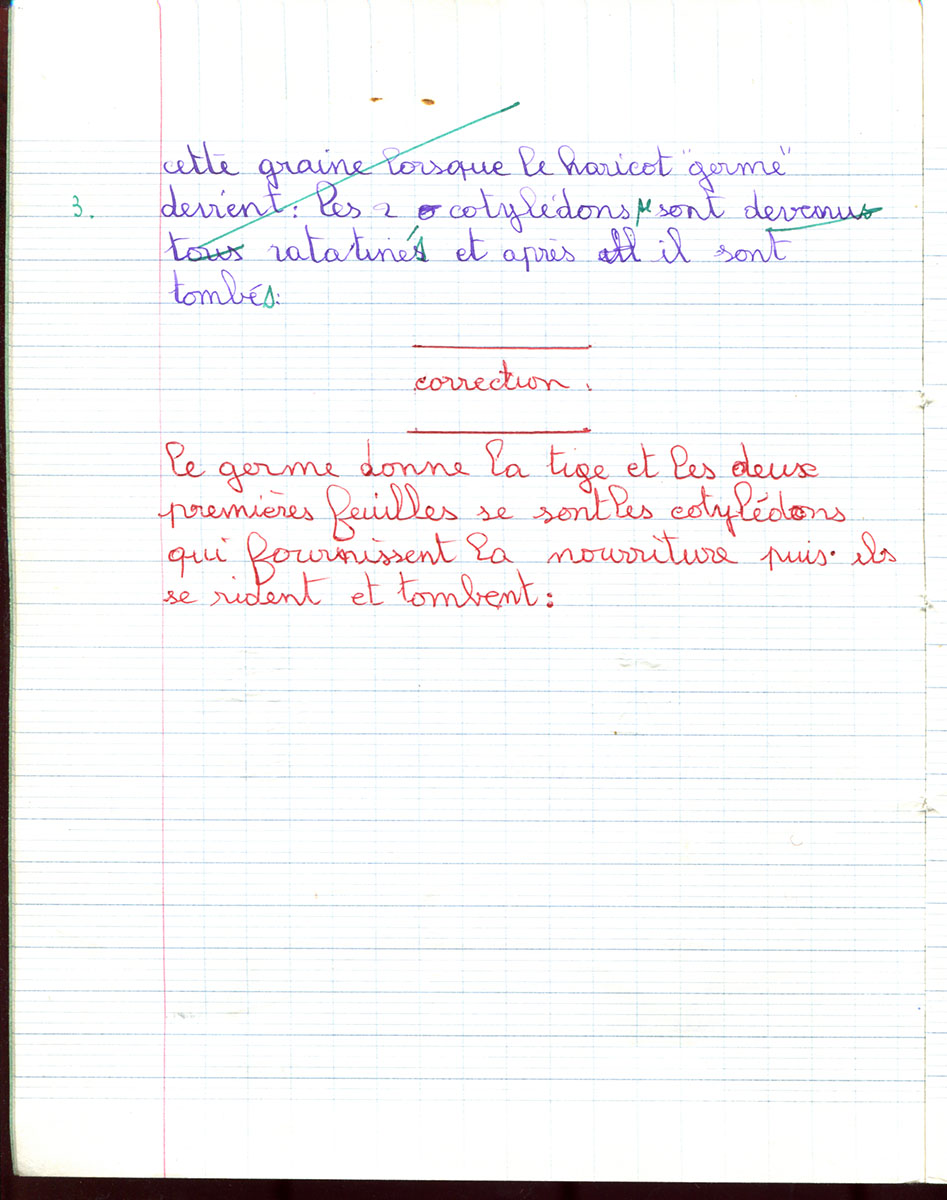 cette graine lorsque le haricot "germe"
3. devient: les 2 cotylédons sont devenus
tous ratatinés et après il sont
tombés.
correction.
le germe donne la tige et les deux
premières feuilles se sont les cotylédons
qui fournissent la nourriture puis. ils
se rident et tombent: